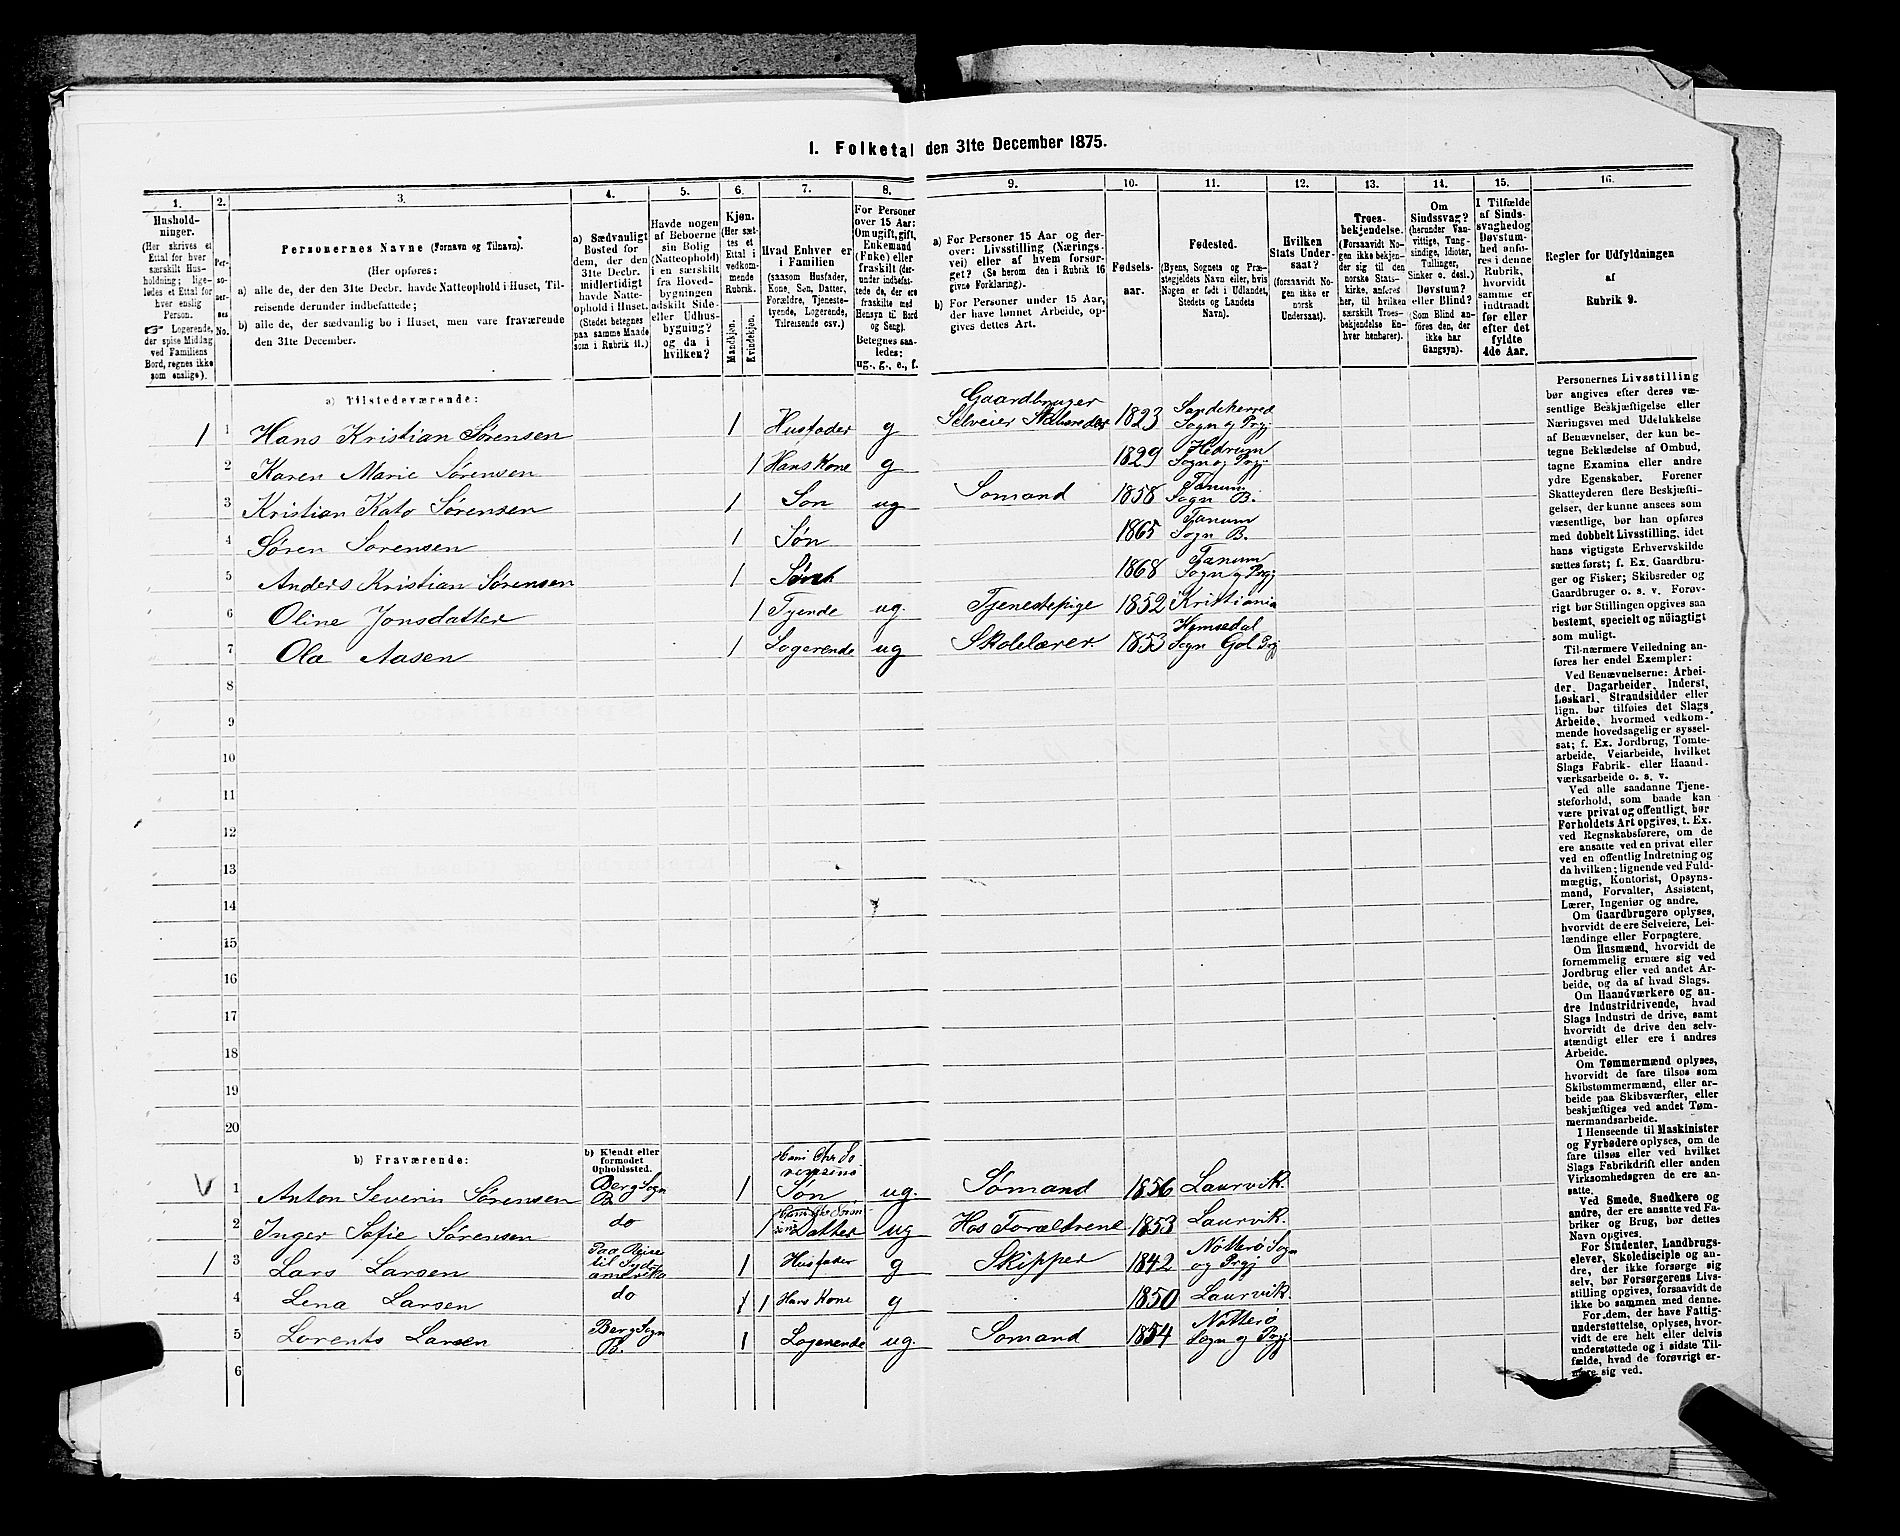 I. Folketal den 31te December 1875.
1. 2. 3. 4. 5. 6. 7. 8. 9. 10. 11. 12. 13. 14. 15. 16.
Hushold-
ninger.
(Her skrives et
Ettal for hver
særskilt Hus-
holdning; lige-
ledes et Ettal for
hver enslig
Person.
☞ Logerende,
der spise Middag
ved Familiens
Bord, regnes ikke
som enslige).
Per-
so-
ner-
nes
No.
Personernes Navne (Fornavn og Tilnavn).
(Her opføres:
a) alle de, der den 31te Decbr. havde Natteophold i Huset, Til-
reisende derunder indbefattede;
b) alle de, der sædvanlig bo i Huset, men vare fraværende
den 31te December.
a) Sædvanligt
Bosted for
dem, der den
31te Decbr.
midlertidigt
havde Natte-
ophold i Huset.
(Stedet betegnes
paa samme Maade
som i Rubrik 11.)
Havde nogen
af Beboerne
sin Bolig
(Natteophold)
i en særskilt
fra Hoved-
bygningen
adskilt Side-
eller Udhus-
bygning?
og da i
hvilken?
Kjøn.
(Her sæt-
tes et
Ettal i
vedkom-
mende
Rubrik.
Mandkjøn.
Kvindekjøn.
Hvad Enhver er
i Familien
(saasom Husfader,
Kone, Søn, Datter,
Forældre, Tjeneste-
tyende, Logerende,
Tilreisende osv.)
For Personer
over 15 Aar:
Om ugift, gift,
Enkemand
(Enke) eller
fraskilt (der-
under indbefat-
tede de, der ere
fraskilte med
Hensyn til Bord
og Seng).
Betegnes saa-
ledes:
ug., g., e., f.
a) For Personer 15 Aar og der-
over: Livsstilling (Nærings-
vei) eller af hvem forsør-
get? (Se herom den i Rubrik 16
givne Forklaring).
b) For Personer under 15 Aar,
der have lønnet Arbeide, op-
gives dettes Art.
Fødsels-
aar.
Fødested.
(Byens, Sognets og Præ-
stegjeldets Navn eller, hvis
Nogen er født i Udlandet,
Stedets og Landets
Navn).
Hvilken
Stats Under-
saat?
(forsaavidt No-
gen ikke er
norsk
Undersaat).
Troes-
bekjendelse.
(Forsaavidt No-
gen ikke bekjen-
der sig til den
norske Stats-
kirke, anføres
her, til hvilken
særskilt Troes-
bekjendelse En-
hver henhører).
Om
Sindssvag?
(herunder Van-
vittige, Tung-
sindige, Idioter,
Tullinger,
Sinker o. desl.)
Døvstum?
eller Blind?
(Som Blind an-
føres den, der
ikke har
Gangsyn).
I Tilfælde
af Sinds-
svaghed og
Døvstum-
hed anfø-
res i denne
Rubrik,
hvorvidt
samme er
indtraadt
før eller
efter det
fyldte
4de Aar.
Regler for Udfyldningen
af
Rubrik 9.
a) Tilstedeværende:
1 1 Hans Kristian Sørensen 1 Husfader g Gaardbruger Selveier 1823 Sandeherred Sogn og Prgj
2 Karen Marie Sørensen 1 Hans Kone g 1829 Hedrum Sogn og Prgj
3 Kristian Kato Sørensen 1 Søn ug Sømand 1858 Tanum Sogn B.
4 Søren Sørensen 1 Søn 1865 Tanum Sogn B.
5 Anders Kristian Sørensen 1 Søn 1868 Tanum Sogn og Prgj
6 Oline Jonsdatter 1 Tyende ug. Tjenestepige 1852 Kristiania
7 Ola Aasen 1 Logerende ug Skolelærer. 1853 Hemsedal Sogn Gol Prgj
8
9
10
11
12
13
14
15
16
17
18
19
20
b) Fraværende:
b) Kjendt eller
formodet
Opholdssted.
1 Anton Severin Sørensen Berg Sogn B. 1 Hans Chr Sørensens Søn ug. Sømand 1856 Laurvik.
2 Inger Sofie Sørensen do 1 Datter ug Hos Forældrene 1853 Laurvik.
1 3 Lars Larsen Paa Reise til Sydamerika 1 Husfader g Skipper 1842 Nötterö Sogn og Prgj
4 Lena Larsen do 1 1 Hans Kone g 1850 Laurvik.
5 Lorents Larsen Berg Sogn B. 1 Logerende ug. Sømand 1854 Nötterö Sogn og Prgj.
6
Personernes Livsstilling
bør angives efter deres væ-
sentlige Beskjæftigelse eller
Næringsvei med Udelukkelse
af Benævnelser, der kun be-
tegne Beklædelse af Ombud,
tagne Examina eller andre
ydre Egenskaber. Forener
Skatteyderen flere Beskjæfti-
gelser, der kunne ansees som
væsentlige, bør han opføres
med dobbelt Livsstilling, idet
hans vigtigste Erhvervskilde
sættes først; f. Ex. Gaardbru-
ger og Fisker; Skibsreder og
Gaardbruger o. s. v. Forøv-
rigt bør Stillingen opgives saa
bestemt, specielt og nøiagtigt
som muligt.
Til nærmere Veiledning an-
føres her endel Exempler:
Ved Benævnelserne: Arbei-
der, Dagarbeider, Inderst,
Løskarl, Strandsidder eller
lign. bør tilføies det Slags
Arbeide, hvormed vedkom-
mende hovedsagelig er syssel-
sat; f. Ex. Jordbrug, Tomte-
arbeide, Veiarbeide, hvilket
Slags Fabrik- eller Haand-
værksarbeide o. s. v.
Ved alle saadanne Tjene-
steforhold, som baade kan
være privat og offentligt, bør
Forholdets Art opgives, t. Ex.
ved Regnskabsførere, om de
ere ansatte ved en privat eller
ved en offentlig Indretning og
da hvilken; lignende ved Fuld-
mægtig, Kontorist, Opsyns-
mand, Forvalter, Assistent,
Lærer, Ingeniør og andre.
Om Gaardbrugere oplyses,
hvorvidt de ere Selveiere, Lei-
lændinge eller Forpagtere.
Om Husmænd, hvorvidt de
fornemmelig ernære sig ved
Jordbrug eller ved andet Ar-
beide, og da af hvad Slags.
Om Haandværkere og an-
dre Industridrivende, hvad
Slags Industri de drive, samt
hvorvidt de drive den selv-
stændigt eller ere i andres
Arbeide.
Om Tømmermænd oplyses,
hvorvidt de fare tilsøs som
Skibstømmermænd, eller ar-
beide paa Skibsværfter, eller
beskjæftiges ved andet Tøm-
mermandsarbeide.
I Henseende til Maskinister
og Fyrbødere oplyses, om de
fare tilsøs eller ved hvilket
Slags Fabrikdrift eller anden
Virksomhedsgren de ere an-
satte.
Ved Smede, Snedkere og
andre, der ere ansatte ved Fa-
briker og Brug, bør dettes
Navn opgives.
For Studenter, Landbrugs-
elever, Skoledisciple og an-
dre, der ikke forsørge sig
selv, bør Forsørgerens Livs-
stilling opgives, forsaavidt de
ikke bo sammen med denne.
For dem, der have Fattig-
understøttelse, oplyses, hvor-
vidt de ere helt eller delvis
understøttede og i sidste Til-
fælde, hvad de forøvrigt er-
nære sig ved.